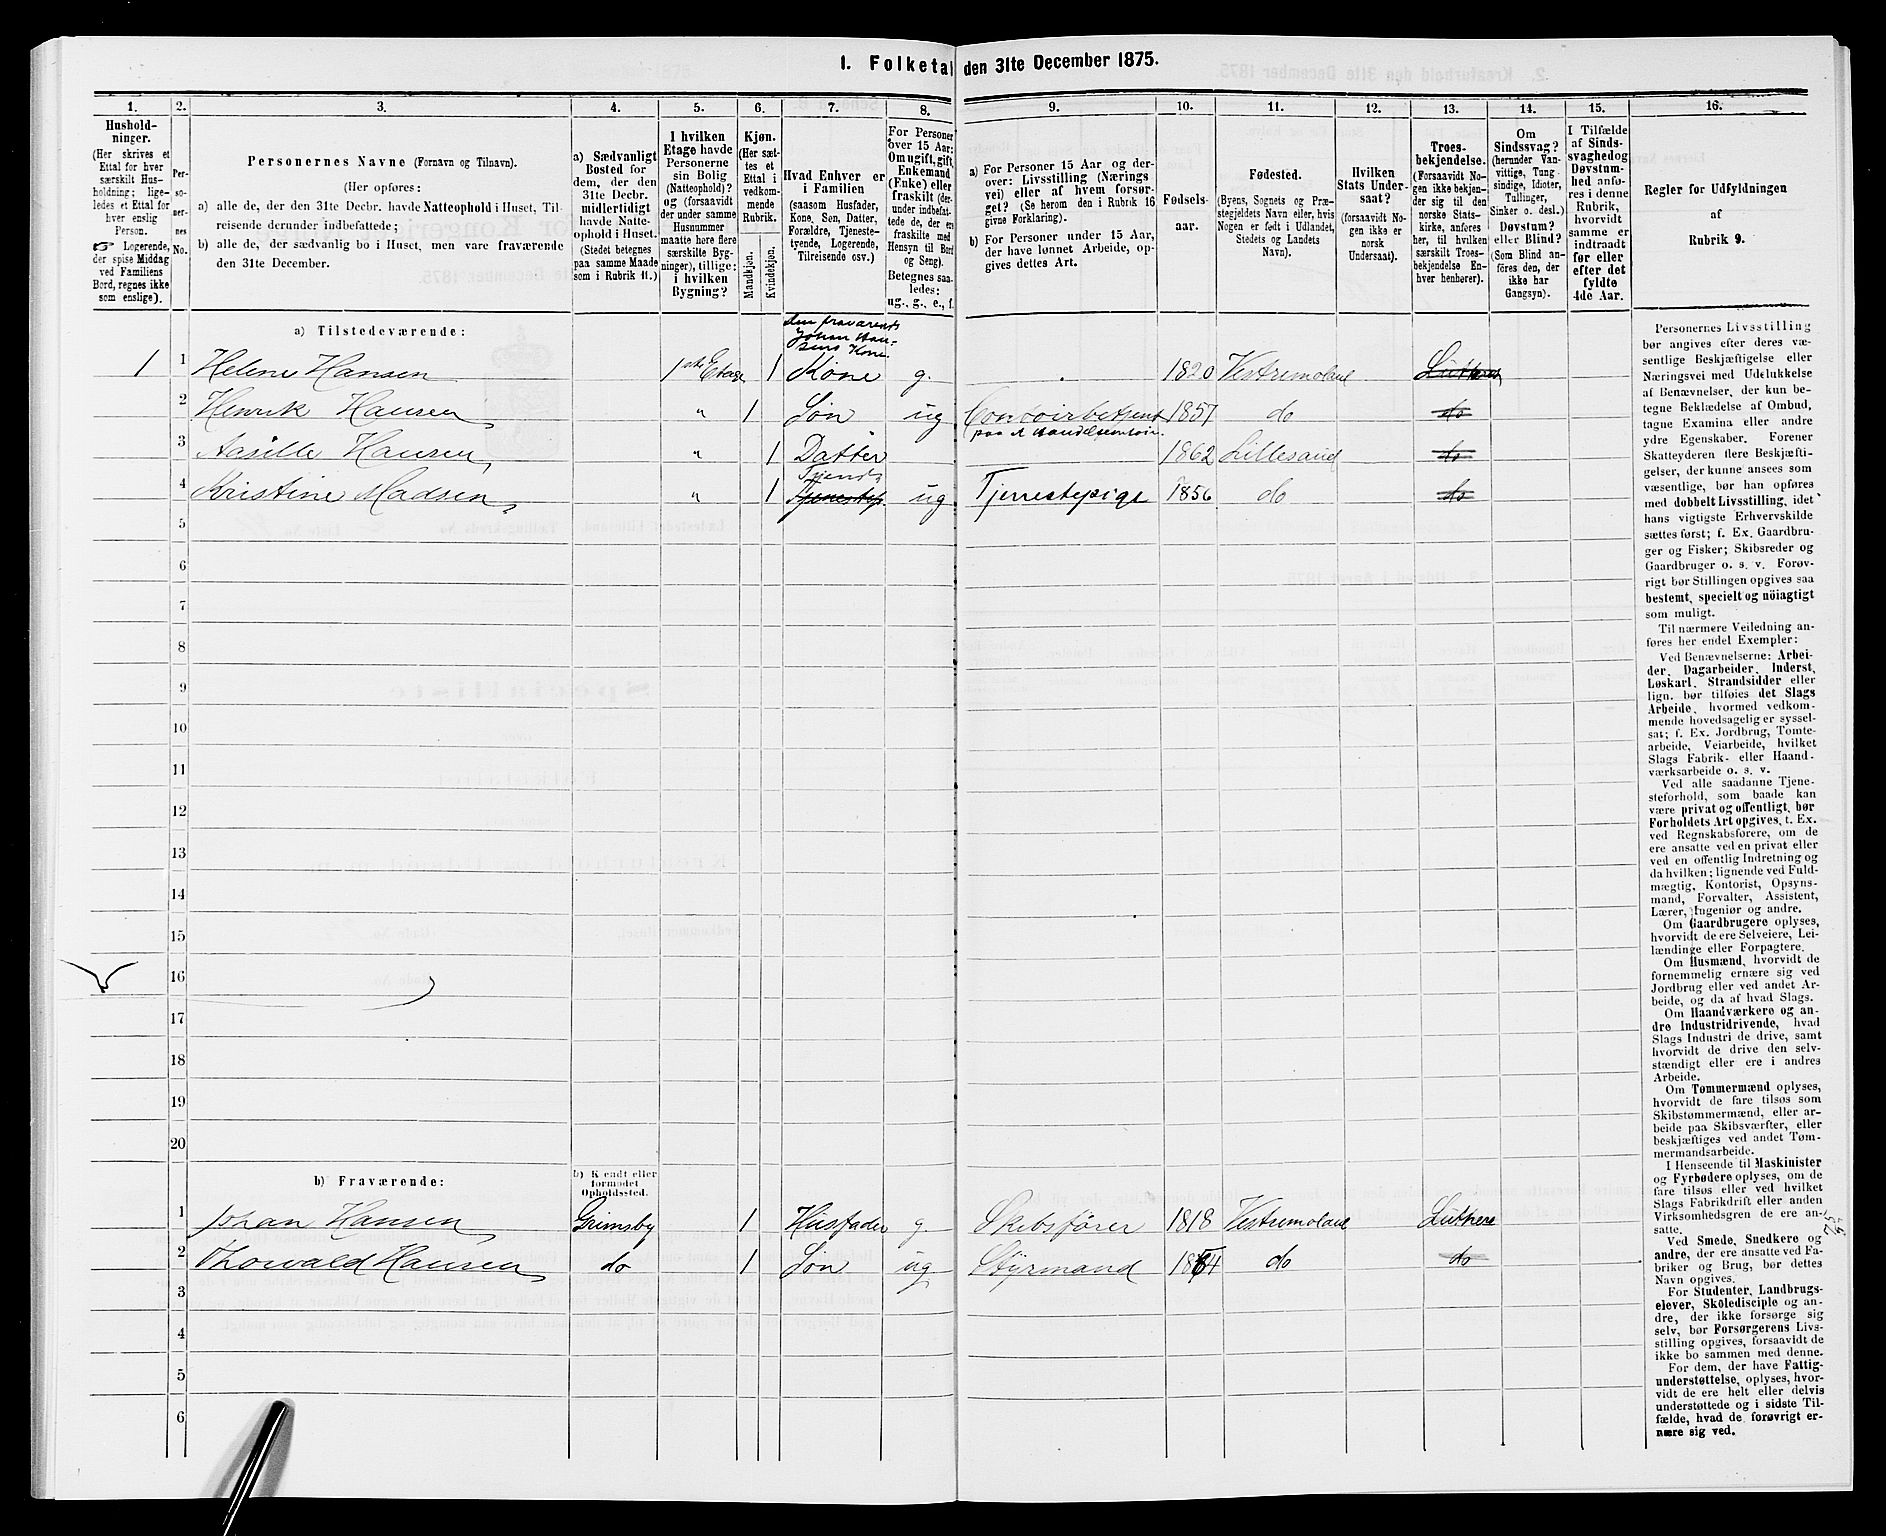 1. Folketal den 31te December 1875.
1. 2. 3. 4. 5. 6. 7. 8. 9. 10. 11. 12. 13. 14. 15. 16.
Hushold-
ninger.
(Her skrives et
Ettal for hver
særskilt Hus-
holdning; lige-
ledes et Ettal for
hver enslig
Person.
☞ Logerende,
der spise Middag
ved Familiens
Bord, regnes ikke
som enslige).
Per-
so-
ner-
nes
No.
Personernes Navne (Fornavn og Tilnavn).
(Her opføres:
a) alle de, der den 31te Decbr. havde Natteophold i Huset, Til-
reisende derunder indbefattede;
b) alle de, der sædvanlig bo i Huset, men vare fraværende
den 31te December.
a) Sædvanligt
Bosted for
dem, der den
31te Decbr.
midlertidigt
havde Natte-
ophold i Huset.
(Stedet betegnes
paa samme Maade
som i Rubrik 11.)
I hvilken
Etage havde
Personerne
sin Bolig
(Natteophold)?
og (forsaavidt
der under samme
Husnummer
maatte høre flere
særskilte Byg-
ninger), tillige:
i hvilken
Bygning?
Kjøn.
(Her sæt-
tes et
Ettal i
vedkom-
mende
Rubrik.
Mandkjøn.
Kvindekjøn.
Hvad Enhver er
i Familien
(saasom Husfader,
Kone, Søn, Datter,
Forældre, Tjeneste-
tyende, Logerende,
Tilreisende osv.)
For Personer
over 15 Aar:
Om ugift, gift,
Enkemand
(Enke) eller
fraskilt (der-
under indbefat-
tede de, der ere
fraskilte med
Hensyn til Bord
og Seng).
Betegnes saa-
ledes:
ug., g., e., f.
a) For Personer 15 Aar og der-
over: Livsstilling (Nærings
vei) eller af hvem forsør-
get? (Se herom den i Rubrik 16
givne Forklaring).
b) For Personer under 15 Aar,
der have lønnet Arbeide, op-
gives dettes Art.
Fødsels-
aar.
Fødested.
(Byens, Sognets og Præ-
stegjeldets Navn eller, hvis
Nogen er født i Udlandet,
Stedets og Landets
Navn).
I hvilken
Stats Under-
saat?
(forsaavidt No-
gen ikke er
norsk
Undersaat).
Troes-
bekjendelse.
(Forsaavidt No-
gen ikke bekjen-
der sig til den
norske Stats-
kirke, anføres
her, til hvilken
særskilt Troes-
bekjendelse En-
hver henhører).
Om
Sindssvag?
(herunder Van-
vittige, Tung
sindige, Idioter,
Tullinger,
Sinker o. desl.)
Døvstum?
eller Blind?
(Som Blind an-
føres den, der
ikke har
Gangsyn).
I Tilfælde
af Sinds-
svaghed og
Døvstum-
hed anfø-
res i denne
Rubrik,
hvorvidt
samme er
indtraadt
før eller
efter det
fyldte
4de Aar.
Regler for Udfyldningen
af
Rubrik 9.
a) Tilstedeværende:
den fraværende
Johan Han-
sens Kone.
1 1 Helene Hansen 1ste Etage 1 Kone g. 1820 Vestremoland Luthersk
2 Henrik Hansen " 1 Søn ug 1857 do do
paa et Handelscontoir.
3 Aasille Hansen " 1 Datter 1862 Lillesand do
Tyende
4 Kristine Madsen " 1 Tjenestep. ug Tjenestepige 1856 do do
5
6
7
8
9
10
11
12
13
14
15
16
17
18
19
20
b) Fraværende:
b) Kjendt eller
formodet
Opholdssted.
1 Johan Hansen Grimsby 1 Husfader g. Skibsfører 1818 Vestremoland Luthersk
2 Thorvald Hansen do 1 Søn ug Styrmand do do
3
4
5
6
Personernes Livsstilling
bør angives efter deres væ-
sentlige Beskjæftigelse eller
Næringsvei med Udelukkelse
af Benævnelser, der kun be-
tegne Beklædelse af Ombud,
tagne Examina eller andre
ydre Egenskaber. Forener
Skatteyderen flere Beskjæfti-
gelser, der kunne ansees som
væsentlige, bør han opføres
med dobbelt Livsstilling, idet
hans vigtigste Erhvervskilde
sættes først; f. Ex. Gaardbru-
ger og Fisker; Skibsreder og
Gaardbruger o. s. v. Forøv-
rigt bør Stillingen opgives saa
bestemt, specielt og nöiagtigt
som muligt.
Til nærmere Veiledning an-
føres her endel Exempler:
Ved Benævnelserne: Arbei-
der, Dagarbeider, Inderst,
Løskarl, Strandsidder eller
lign. bør tilføies det Slags
Arbeide, hvormed vedkom-
mende hovedsagelig er syssel-
sat; f. Ex. Jordbrug, Tomte-
arbeide, Veiarbeide, hvilket
Slags Fabrik- eller Haand-
værksarbeide o. s. v.
Ved alle saadanne Tjene-
steforhold, som baade kan
være privat og offentligt, bør
Forholdets Art opgives, t. Ex.
ved Regnskabsførere, om de
ere ansatte ved en privat eller
ved en offentlig Indretning og
da hvilken; lignende ved Fuld-
mægtig, Kontorist, Opsyns-
mand, Forvalter, Assistent,
Lærer, Ingeniør og andre.
Om Gaardbrugere oplyses,
hvorvidt de ere Selveiere, Lei-
lændinge eller Forpagtere.
Om Husmænd, hvorvidt de
fornemmelig ernære sig ved
Jordbrug eller ved andet Ar-
beide, og da af hvad Slags.
Om Haandværkere og an-
dre Industridrivende, hvad
Slags Industri de drive, samt
hvorvidt de drive den selv-
stændigt eller ere i andres
Arbeide.
Om Tømmermænd oplyses,
hvorvidt de fare tilsøs som
Skibstømmermænd, eller ar-
beide paa Skibsværfter, eller
beskjæftiges ved andet Tøm-
mermandsarbeide.
I Henseende til Maskinister
og Fyrbødere oplyses, om de
fare tilsøs eller ved hvilket
Slags Fabrikdrift eller anden
Virksomhedsgren de ere an-
satte.
Ved Smede, Snedkere og
andre, der ere ansatte ved Fa-
briker og Brug, bør dettes
Navn opgives.
For Studenter, Landbrugs-
elever, Skoledisciple og an-
dre, der ikke forsørge sig
selv, bør Forsørgerens Livs-
stilling opgives, forsaavidt de
ikke bo sammen med denne.
For dem, der have Fattig-
understøttelse, oplyses, hvor-
vidt de ere helt eller delvis
understøttede og i sidste Til-
fælde, hvad de forøvrigt er-
nære sig ved.